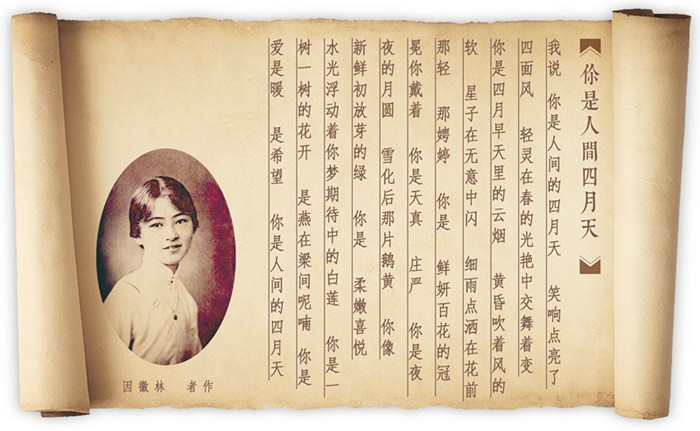 你是人間四月天
我说 你是人间的四月天 笑响点亮了
四面风 轻灵在春的光艳中交舞着变
你是四月早天里的云烟 黄昏吹着风的
软 星子在无意中闪 细雨点洒在花前
那轻 那娉婷 你是 鲜妍百花的冠
冕你戴着 你是天真 庄严 你是夜
夜的月圆 雪化后那片鹅黄 你像
新鲜初放芽的绿 你是 柔嫩喜悦
水光浮动着你梦期待中的白莲 你是一
树一树的花开 是燕在梁间呢喃 你是
爱是暖 是希望 你是人间的四月天
作者 林徽因